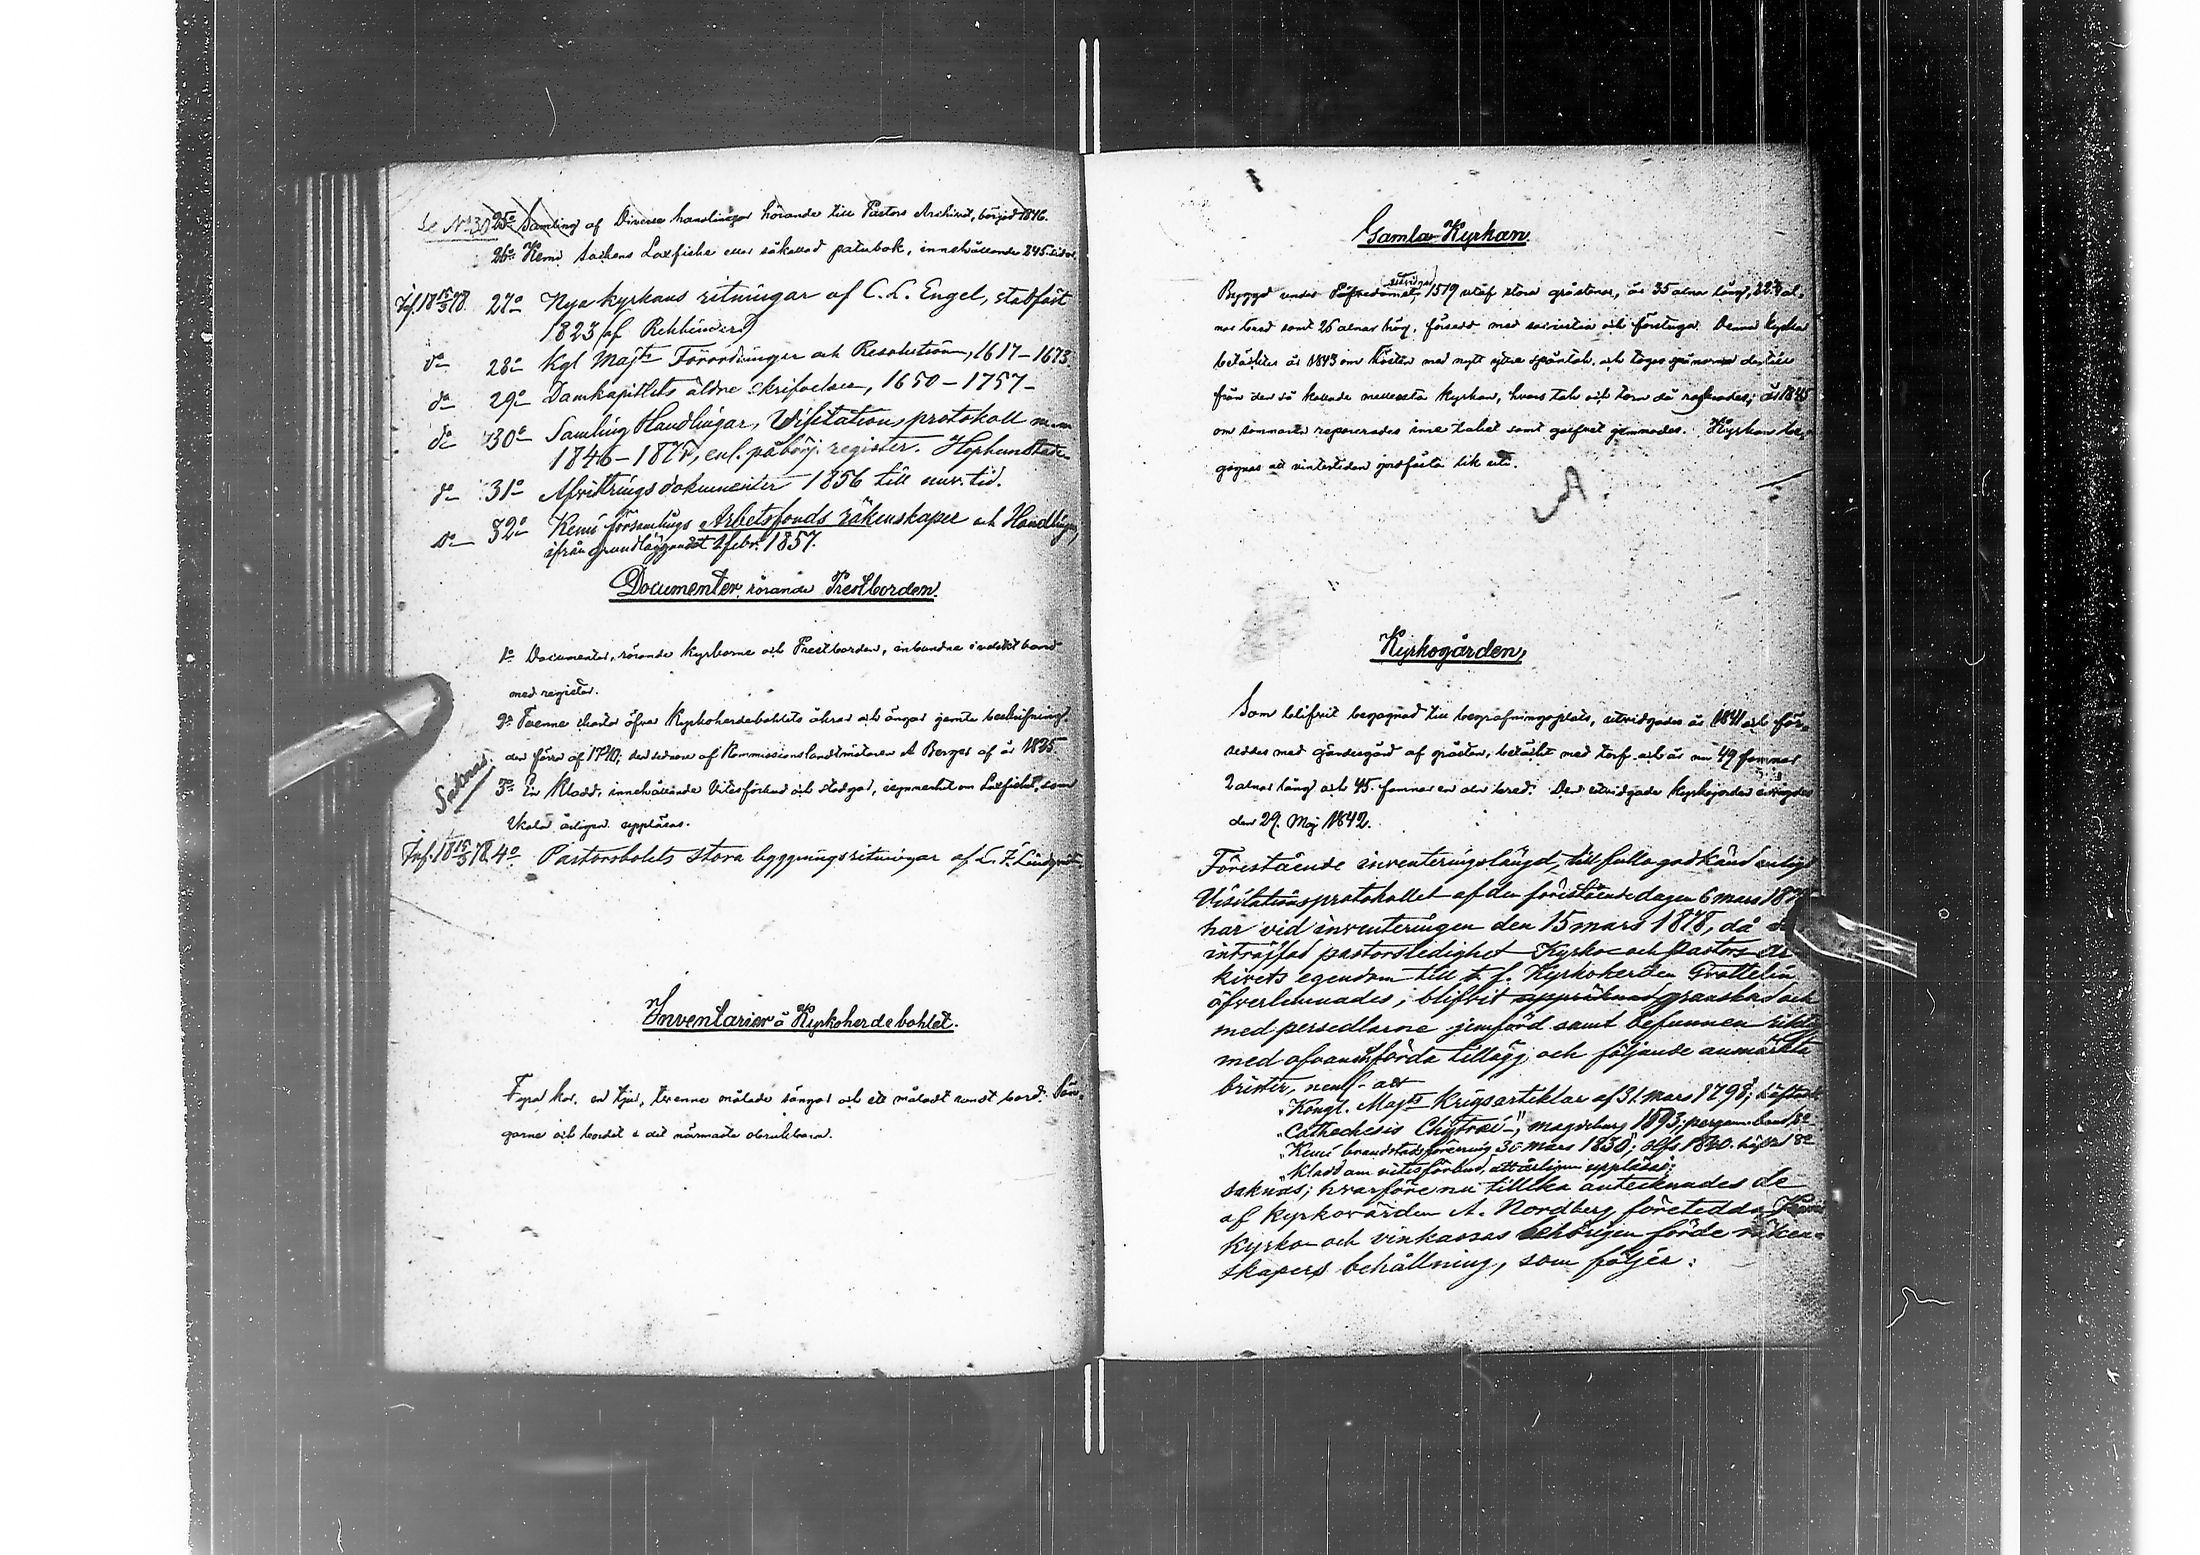 Se No 30 25o Samling af Diverse handlingar hörande till Pastors Archivet, börjad 1846.
26o Kemi Sockens Laxfiske eller såkallad patubok, innehållande 245 sidor.
Inf. 18 15/3 78. 27o Nya kyrkans ritningar af C. L. Engel, stadfäst
1823 (af Rehbinder)
do 28o Kgl Majts Förordningar och Resolutioner, 1617-1673.
do 29o Domkapitlets äldre skrifvelser, 1650-1757-
do 30o Samling Handlingar, Visitations protokoll m.m
1846-1875, enl. påbörj. register.
do 31o Afvittringsdokumenter 1856 till nuv. tid.
do 32o Kemi församlings Arbetsfonds räkenskaper och Handlingar,
ifrån grundläggandet 2 febr. 1857.
Documenter, rörande Prestborden.
1o Documenter, rörande Kyrkorne och Prestborden, inbundne i
med register.
2o Tvenne chartor öfver Kyrkoherdebohlets åkrar och ängar jemte beskrifning
den förra af 1770; den sednare af Kommissionslandtmätaren A Berger af år 1825.
Saknas. 3o En Kladd, innehållande Vitesförbud och stadgar, om Laxfisket, som
skola årligen uppläsas.
Inf. 18 15/3 78. 4o Pastorsbolets stora byggningsritningar af L. I. Lindqvist.
Inventarier å Kyrkoherdebohlet.
Fyra kor, en tjur, tvenne målade sängar och ett måladt rundt bord. Sän-
garne och bordet i det närmaste obrukbara.
Gamla Kyrkan.
Byggd under Påfvedömet, 1519 utaf stora gråstenar, är 35 alnar lång, 22 3/4 al-
nar bred samt 26 alnar hög, försedd med sacristia och förstuga. Denna Kyrka
betäcktes år 1843 om hösten med nytt yttre spåntak, och togos spånorna dertill
från den så kallade mellersta Kyrkan, hvars tak och torn då raserades; år 1845
om sommaren reparerades inre taket samt golfvet. Kyrkan be-
gagnas att vintertiden jordfästa lik uti.
A.
Kyrkogården,
Som blifvit begagnad till begrafningsplats, utvidgades år 1841 och för-
seddes med gärdesgård af gråsten, betäckt med torf och är nu 49 famnar
2 alnar lång och 45 famnar en aln bred. Den utvidgade Kyrkojorden invigdes
den 29. Maj 1842.
Förestående inventeringslängd, till fullo godkänd enligt
Visitationsprotokollet af den förestående dagen 6 mars 187
har vid inventeringen den 15 mars 1878, då
inträffad pastorsledighet Kyrko- och Pastors Ar
kivets egendom till t. f. Kyrkoherden Grottelin
öfverlemnades, blifvit granskad och
med persedlarne jemförd samt befunnen riktig
med ofvan införda tillägg och följande anmärkta
brister, neml. att
"Kongl. Majts Krigsartiklar af 31. mars 1798", häftade
"Cathechesis Chytræi", Magdeburg 1593; pergam. band 8o
"Kemi brandstodsförening 30 mars 1830; Hfs 1840. häftad 8o
"Kladd om vitesförbud, att årligen uppläsas;
saknas; hvarföre nu tillika antecknades de
af Kyrkovärden A. Nordberg företedda Kemi
Kyrko- och vinkassas behörigen förde räken-
skapers behållning, som följer: